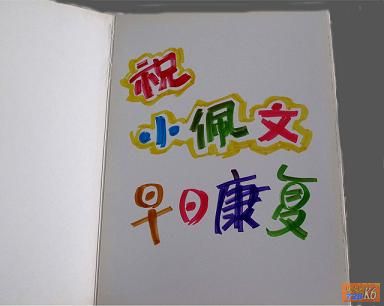 祝
小佩文
早日康复
K6